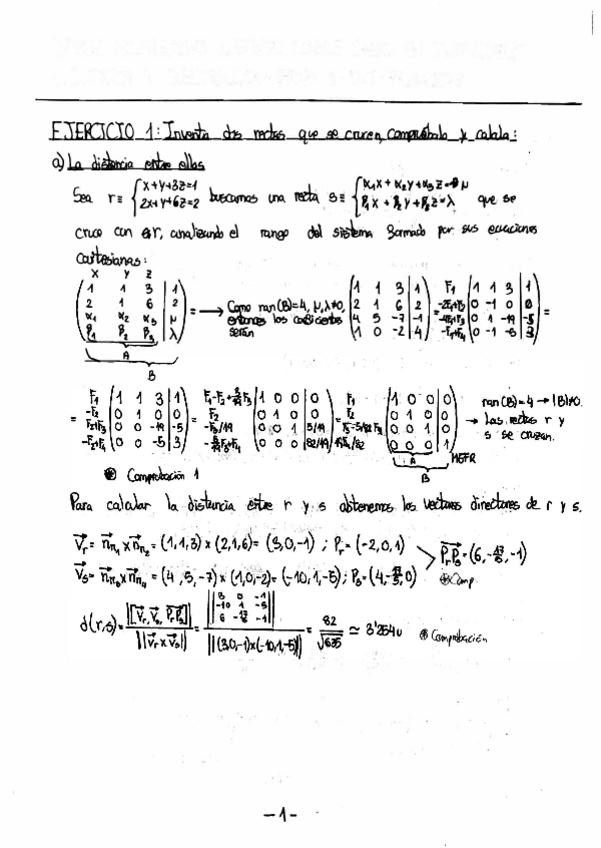 EJERCICIO 1: Inventa dos rectas que se crucen, compruébalo y calcula:
a) La distancia entre ellas
Sea r≡ {x+y+3z=1 2x+y+6z=2 buscamos una recta s≡ {α₁x+α₂y+α₃z=μ β₁x+β₂y+β₃z=λ que se
cruce con r, analizando el rango del sistema formado por sus ecuaciones
cartesianas:
x y z
(1 1 3 | 1
2 1 6 | 2
α₁ α₂ α₃ | μ
β₁ β₂ β₃ | λ)
A
B
→ Como ran(B)=4, μ,λ≠0,
entonces los coeficientes
serán
(1 1 3 | 1
2 1 6 | 2
4 5 -7 | -1
1 0 -2 | 4)
=
F₁
-2F₁+F₂
-4F₁+F₃
-F₁+F₄
(1 1 3 | 1
0 -1 0 | 0
0 1 -19 | -5
0 -1 -5 | 3)
=
=
F₁
-F₂
F₂+F₃
-F₂+F₄
(1 1 3 | 1
0 1 0 | 0
0 0 -19 | -5
0 0 -5 | 3)
=
F₂
-F₃/19
(1 0 0 | 0
0 1 0 | 0
0 0 1 | 5/19
0 0 0 | 82/19)
F₁
F₂
(1 0 0 | 0
0 1 0 | 0
0 0 1 | 0
0 0 0 | 1)
A
B
MEFR
→ ran(B)=4 → |B|≠0.
→ Las rectas r y
s se cruzan.
⊛ Comprobación 1
Para calcular la distancia entre r y s obtenemos los vectores directores de r y s.
v⃗r = n⃗π₁ x n⃗π₂ = (1,1,3) x (2,1,6) = (3,0,-1) ; Pr = (-2,0,1)
v⃗s = n⃗π₃ x n⃗π₄ = (4,5,-7) x (1,0,-2) = (-10,1,-5) ; Ps = (4,-17/5,0)
PrPs = (6,-17/5,-1)
⊛ Comp
d(r,s) = |[v⃗r, v⃗s, PrPs]| / ||v⃗r x v⃗s|| = ||3 0 -1 -10 1 -5 6 -17/5 -1|| / ||(3,0,-1)x(-10,1,-5)|| = 82/√635 ≃ 3'2540 ⊛ Comprobación
-1-